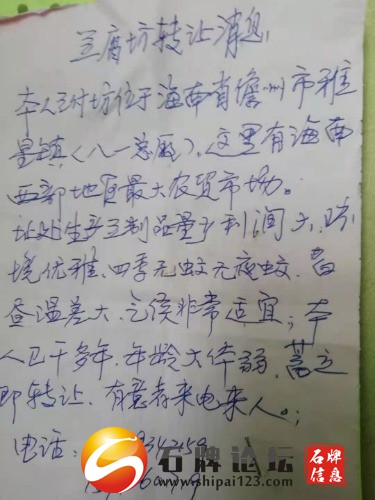 豆腐坊转让消息,
本人豆付坊位于海南省儋州市雅
星镇(八一总厂),这里有海南
西部地区最大农贸市场。
此处生产豆制品量多利润大,环
境优雅,四季无蚊无夜蚊,昼
夜温差大,气侯非常适宜;本
人已干多年,年龄大体弱,
即转让,有意者来电来人。;
电话:
石牌论坛
www.shipai123.com
石牌
信息